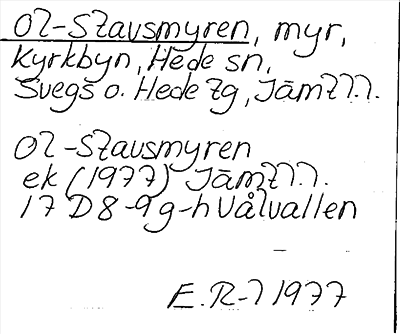 Ol-Stavsmyren, myr,
Kyrkbyn, Hede sn,
Svegs o. Hede tg, Jämtl.l.
Ol-Stavsmyren
ek (1977) Jämtl.l.
17 D 8-9 g-h Vålvallen
E.R-l 1977